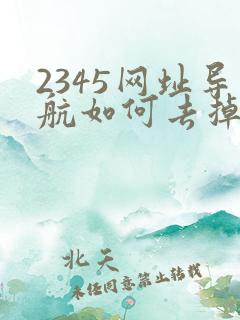 2345网址导
航如何去掉
北天
未经同意禁止转载